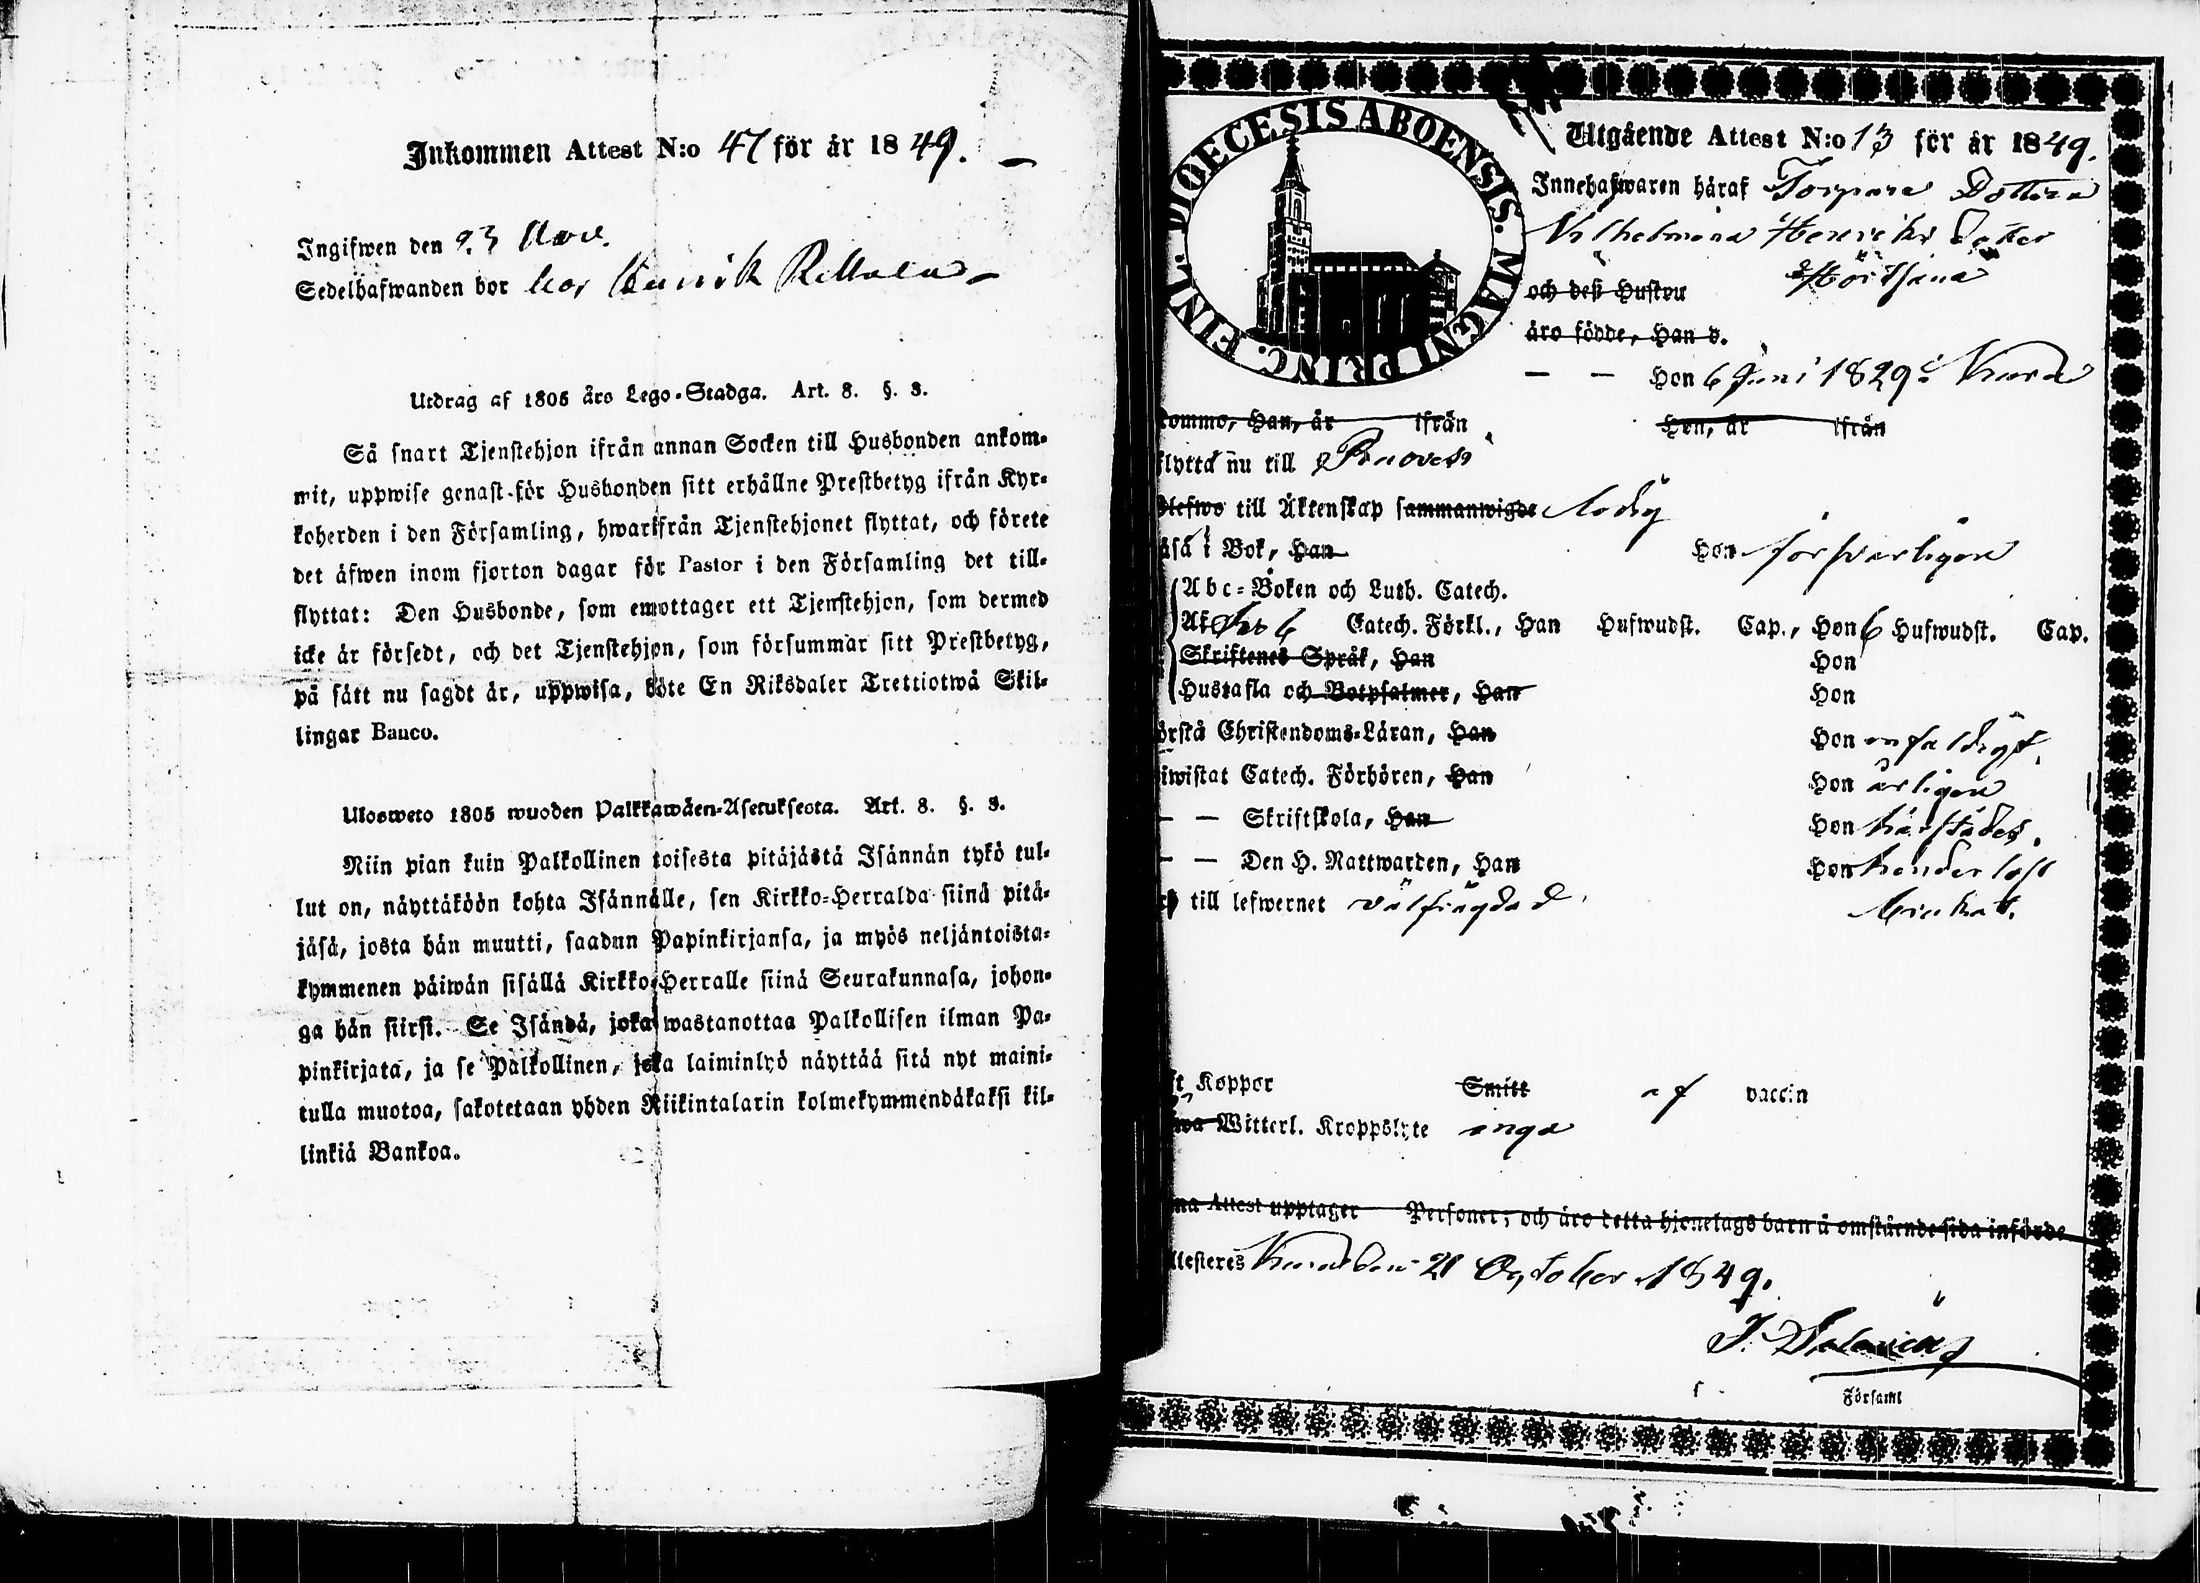 Inkommen Attest N:o 47 för år 1849.
Ingifwen den 23 Nov.
Sedelhafwanden bor hos Henrik
Utdrag af 1805 års Lego-Stadga. Art. 8. §. 3.
Så snart Tjenstehjon ifrån annan Socken till Husbonden ankom-
mit, uppwise genast för Husbonden sitt erhållne Prestbetyg ifrån Kyr-
koherden i den Församling, hwarifrån Tjenstehjonet flyttat, och förete
det äfwen inom fjorton dagar för Pastor i den Församling det till-
flyttat: Den Husbonde, som emottager ett Tjenstehjon, som dermed
icke är försedt, och det Tjenstehjon, som försummar sitt Prestbetyg,
på sätt nu sagdt är, uppwisa, böte En Riksdaler Trettiotwå Skil-
lingar Banco.
Ulosweto 1805 wuoden Palkkawäen-Asetuksesta. Art. 8. §. 3.
Niin pian kuin Palkollinen toisesta pitäjästä Isännän tykö tul-
lut on, näyttäköön kohta Isännälle, sen Kirkko-Herralda siinä pitä-
jäsä, josta hän muutti, saadun Papinkirjansa, ja myös neljäntoista-
kymmenen päiwän sisällä Kirkko-Herralle siinä Seurakunnasa, johon-
ga hän siirsi. Se Isändä, joka wastanottaa Palkollisen ilman Pa-
pinkirjata, ja se Palkollinen, joka laiminlyö näyttää sitä nyt maini-
tulla muotoa, sakotetaan yhden Riikintalarin kolmekymmendäkaksi kil-
linkiä Bankoa.
DIOECESIS ABOENSIS. MAGNI PRINC. FINL.
Utgående Attest N:o 13 för år 1849.
Innehafwaren häraf Torpare Dottren
Vilhelmina Henriks Dotter
och dess Hustru
äro födde, Han d.
— — Hon 6 Juni 1829 i
komms, Han, år ifrån Hon, år ifrån
flytta nu till
lefwo till Äktenskap sammanwigde ledig
läsa i Bok, Han Hon försvarligen
Abc-Boken och Luth. Catech.
Af Catech. Förkl., Han Hufwudst. Cap., Hon 6 Hufwudst. Cap.
Skriftenes Språk, Han Hon
Hustafla och Botpsalmer, Han Hon
örstå Christendoms-Läran, Han Hon enfaldigt.
iwistat Catech. Förhören, Han Hon årligen
— — Skriftskola, Han Hon härstädes.
— — Den H. Nattwarden, Han Hon
till lefwernet välfrägdad.
Koppor Smitt af vaccin
wa Witterl. Kroppslyte inga
na Attest upptager Personer; och äro detta hjonelags barn å omstående sida införde
ttesteres den 21 October 1849.
J.
Församl